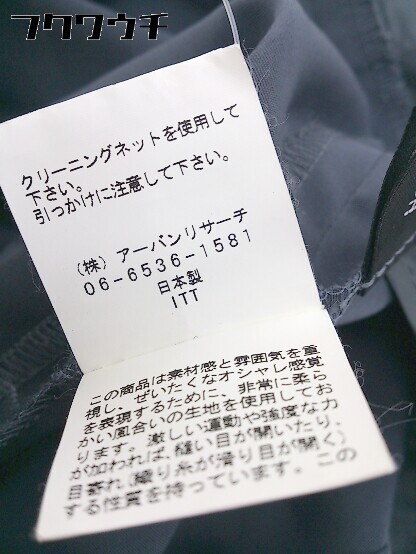 フクウウチ
クリーニングネットを使用して
下さい。
引っかけに注意して下さい。
(株) アーバンリサーチ
06-6536-1581
日本製
ITT
この商品は素材感と雰囲気を重
視し、ぜいたくなオシャレ感覚
を表現するために、非常に柔ら
かい風合いの生地を使用してお
ります。激しい運動や強度な力
が加われば、縫い目が開いたり、
目寄れ(織り糸が滑り目が開く)
する性質を持っています。この